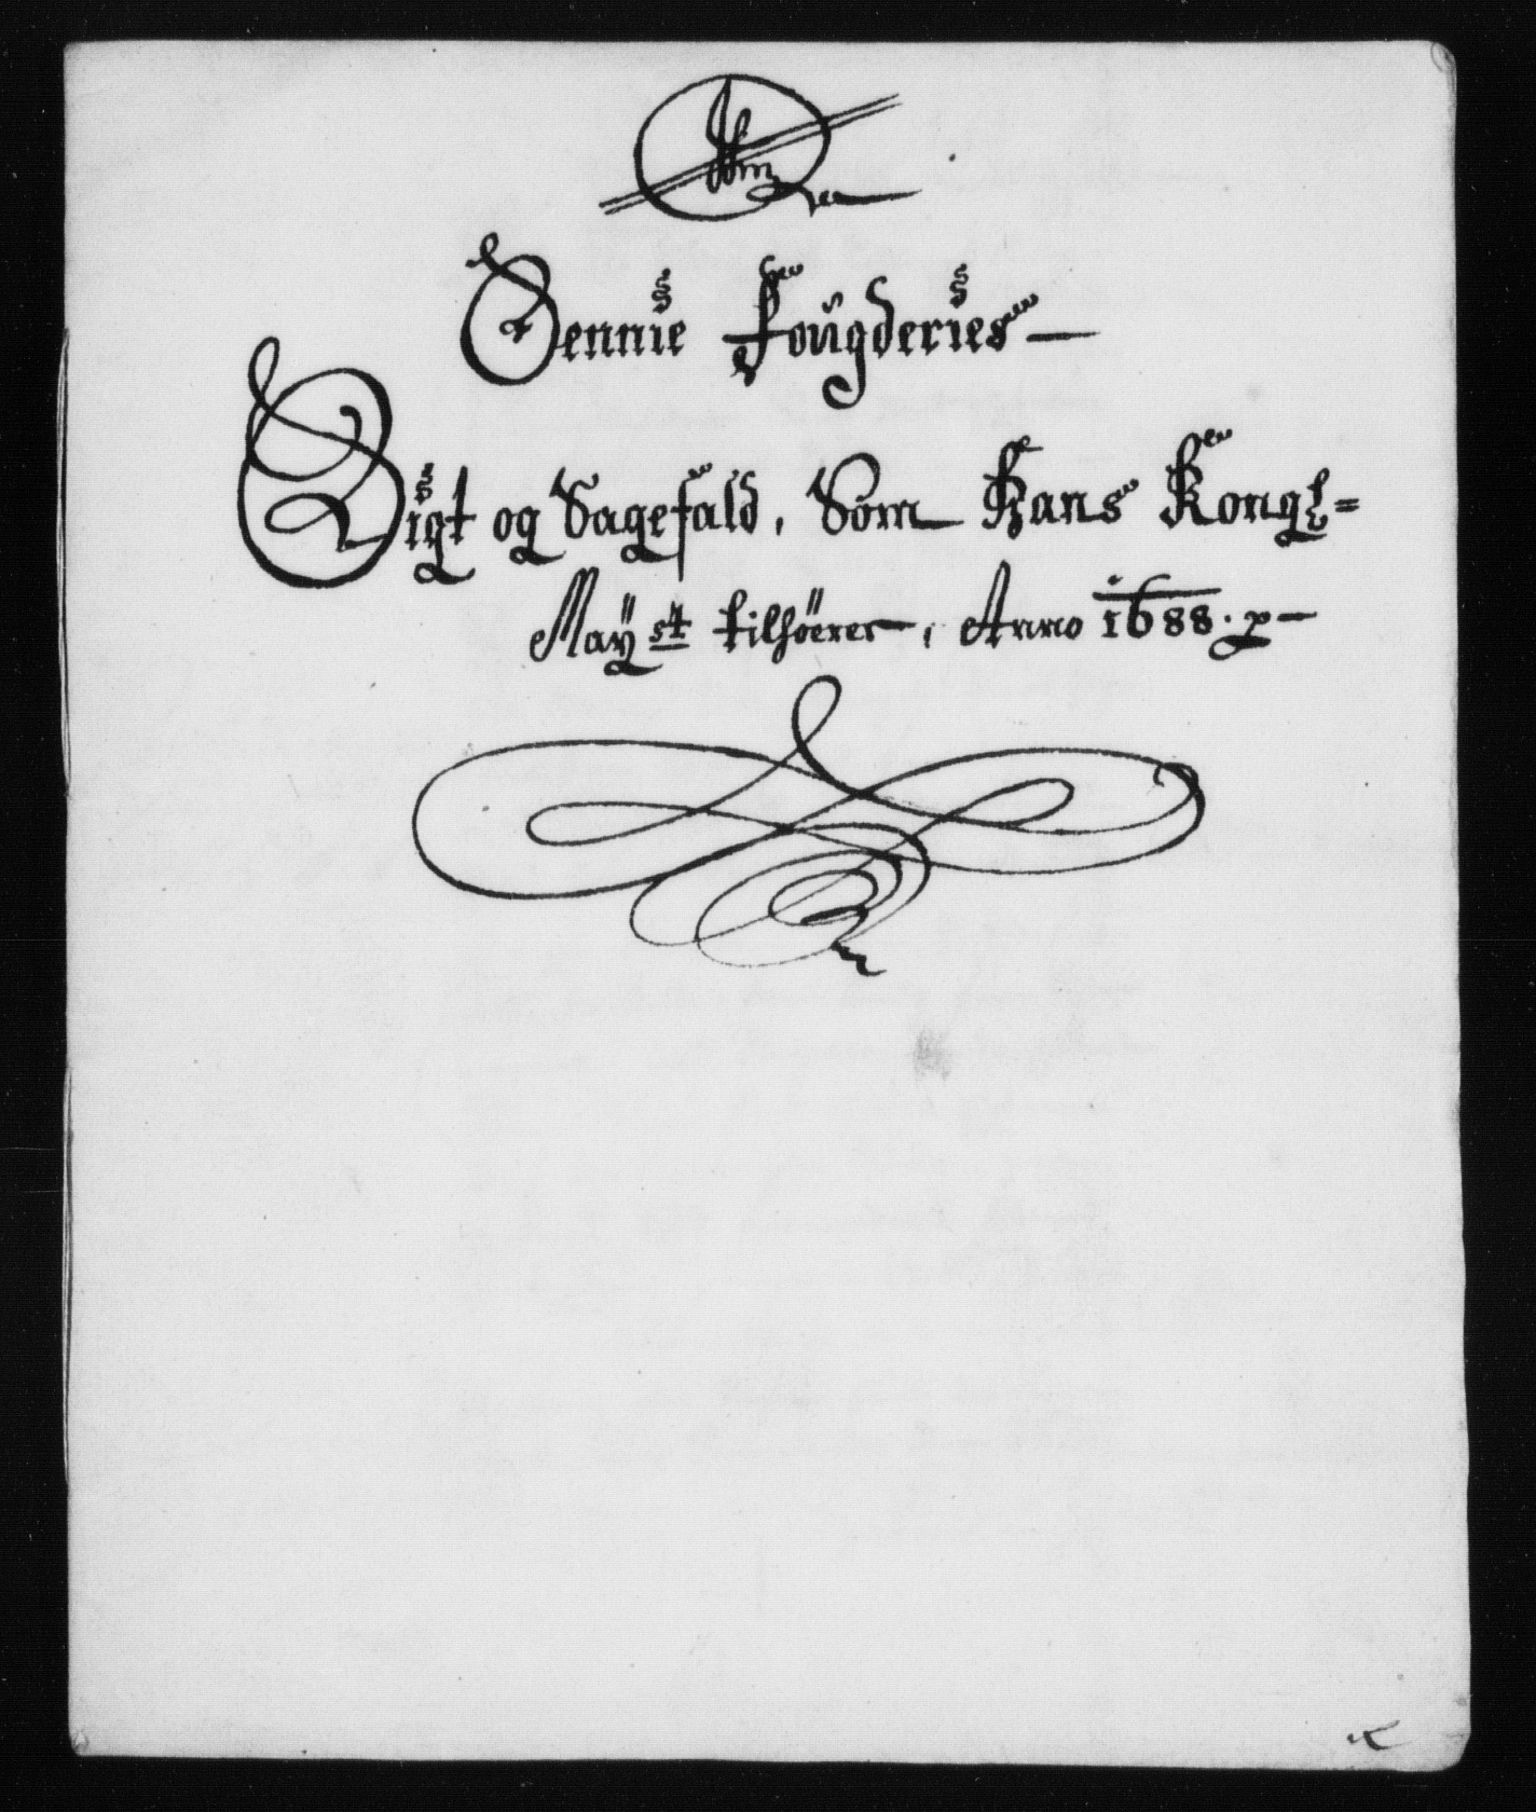 Sennie Foügderies
Sigt og Sagefald, Som Hans Kongl=
Maÿst tilhöerer, Anno 1688.